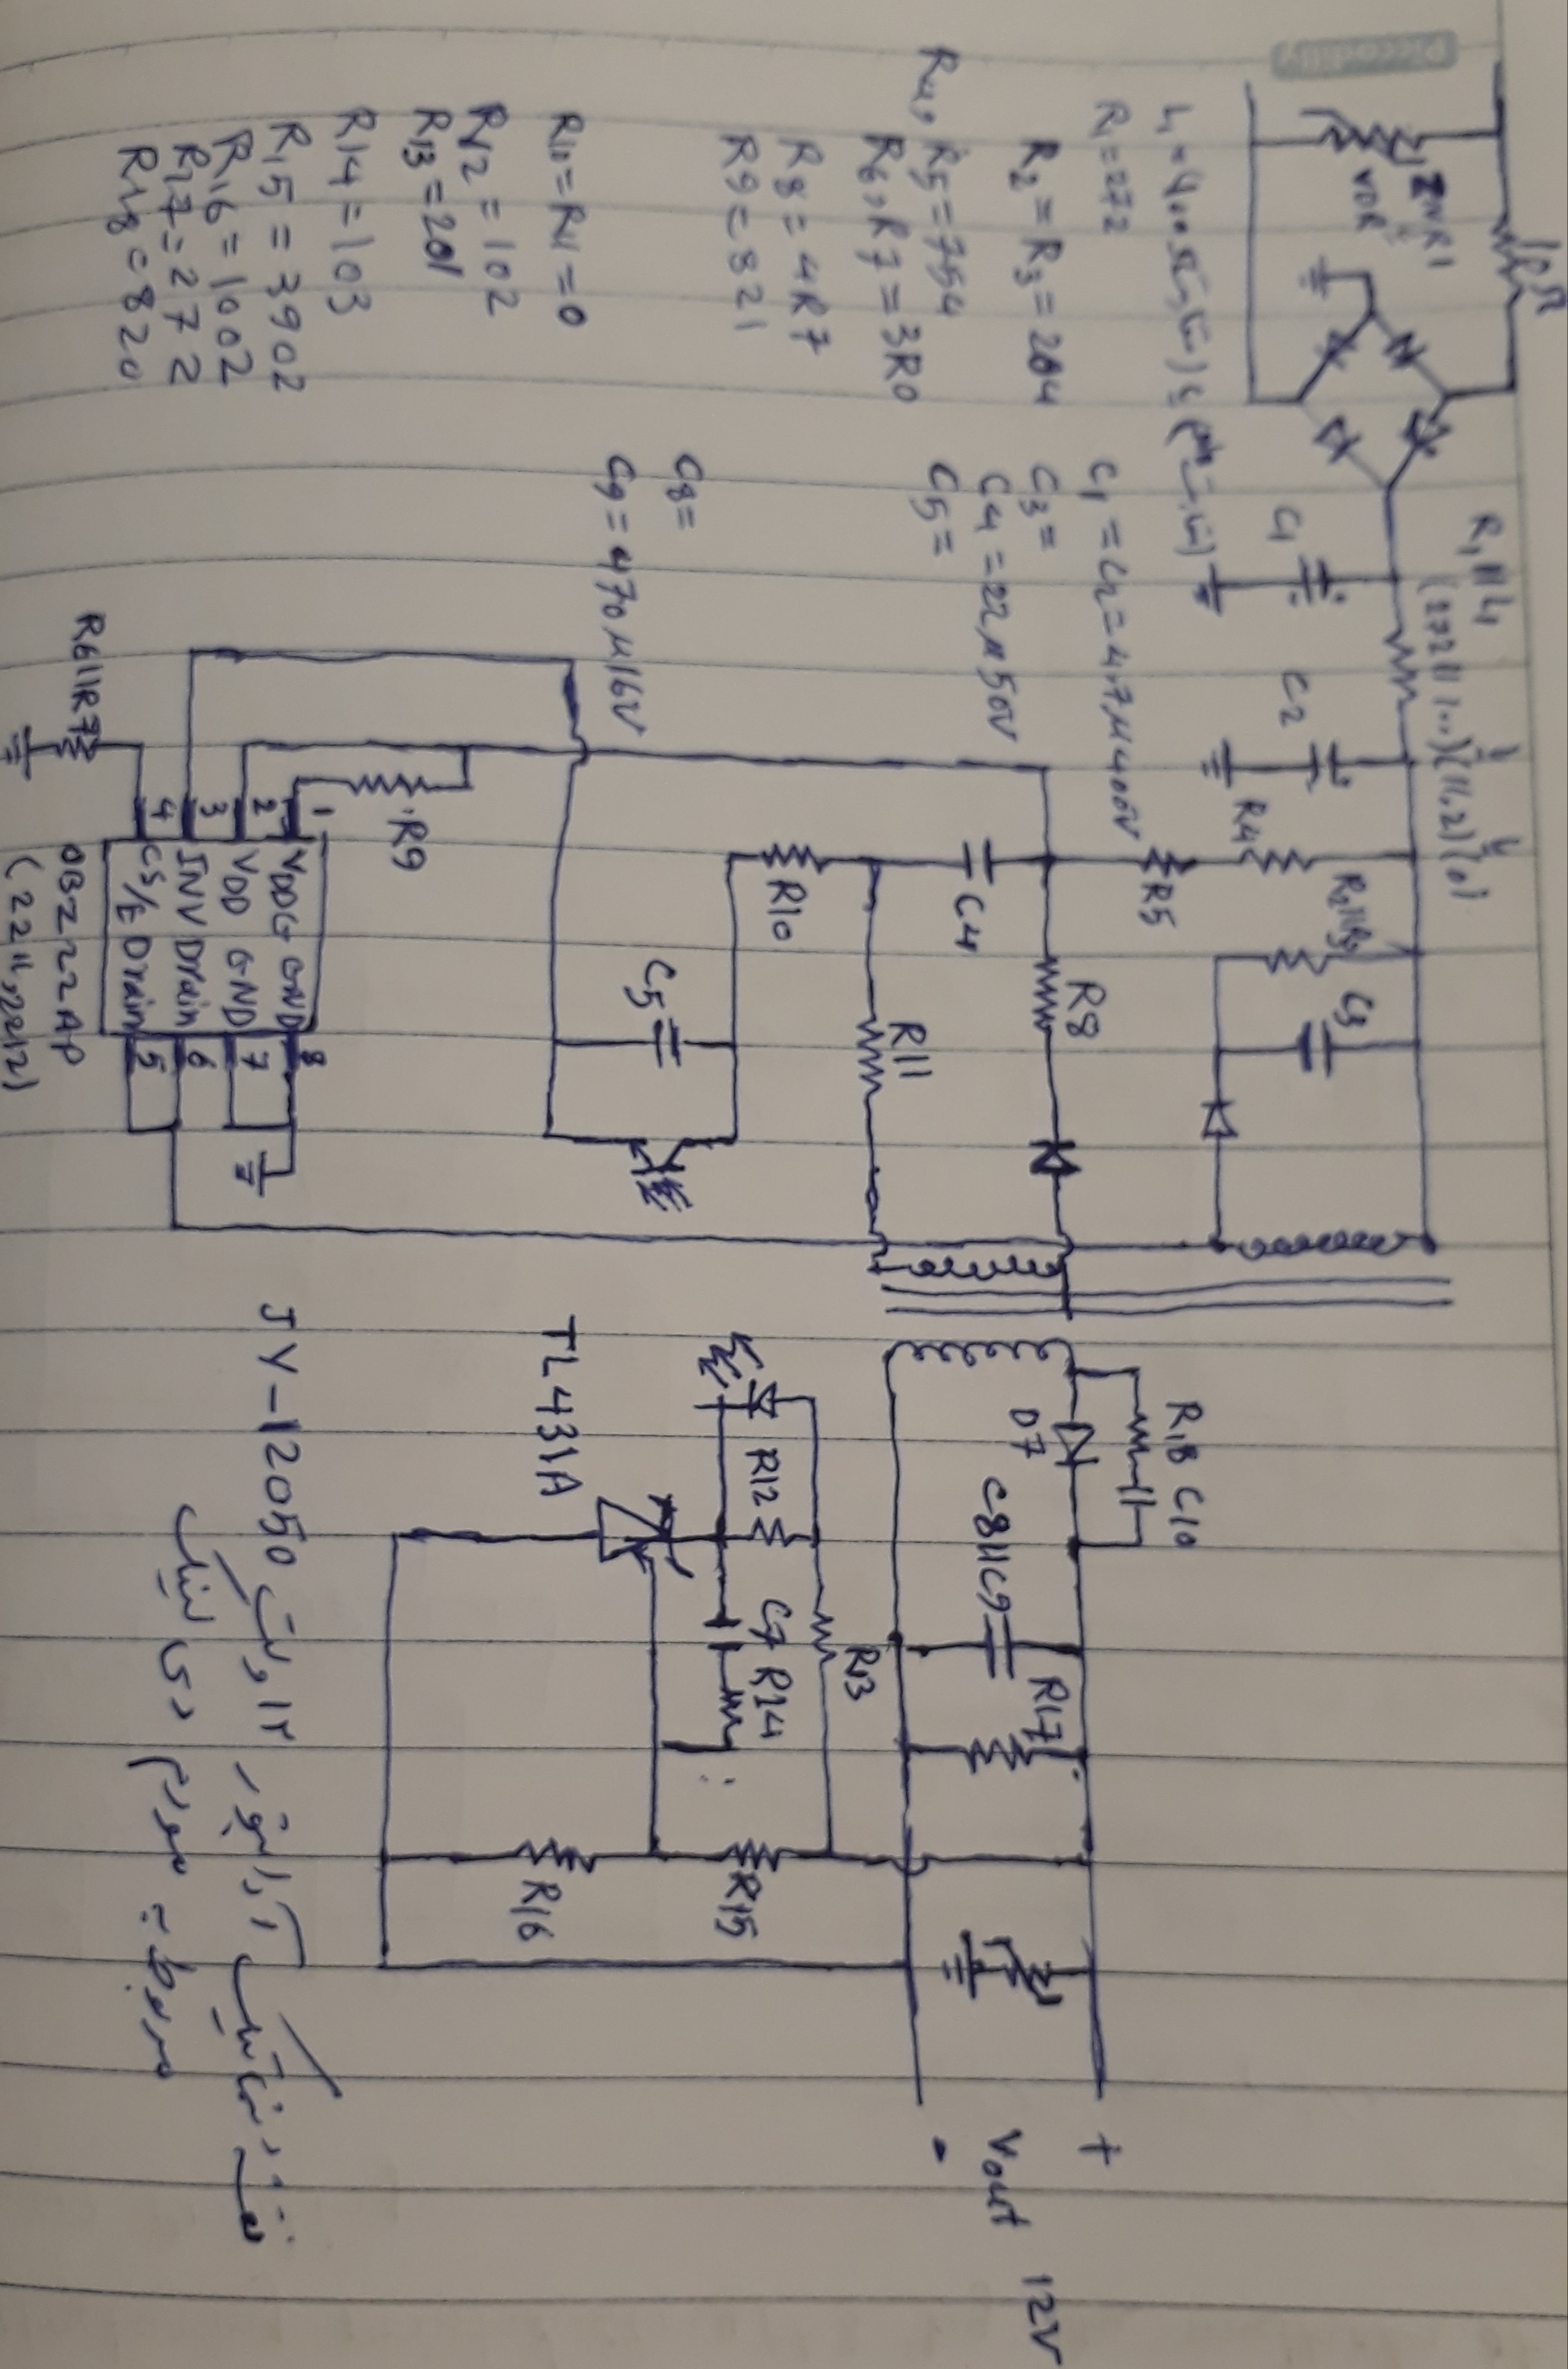 Piccadilly
10Ω
ZNR1
VDR
R1||L1
(272||...)(1/2)(0)
C1
C2
R4
R2||R3
C3
R5
R8
C4
R10
R11
C5
R9
R6||R7
1 VDDG GND 8
2 VDD GND 7
3 INV Drain 6
4 CS/E Drain 5
OB2222AP
(2211,2212)
R18 C10
D7
C8||C9
R17
R13
R12
C7 R14
TL431A
R15
R16
+
Vout 12V
-
R1=272
R2=R3=204
R4,R5=754
R6,R7=3R0
R8=4R7
R9=821
R10=R11=0
R12=102
R13=201
R14=103
R15=3902
R16=1002
R17=272
R18=820
C1=C2=4,7µ400V
C3=
C4=22µ50V
C5=
C8=
C9=470µ16V
JY-12050
۱۲ ولت
آداپتور
مربوط به مودم دی لینک